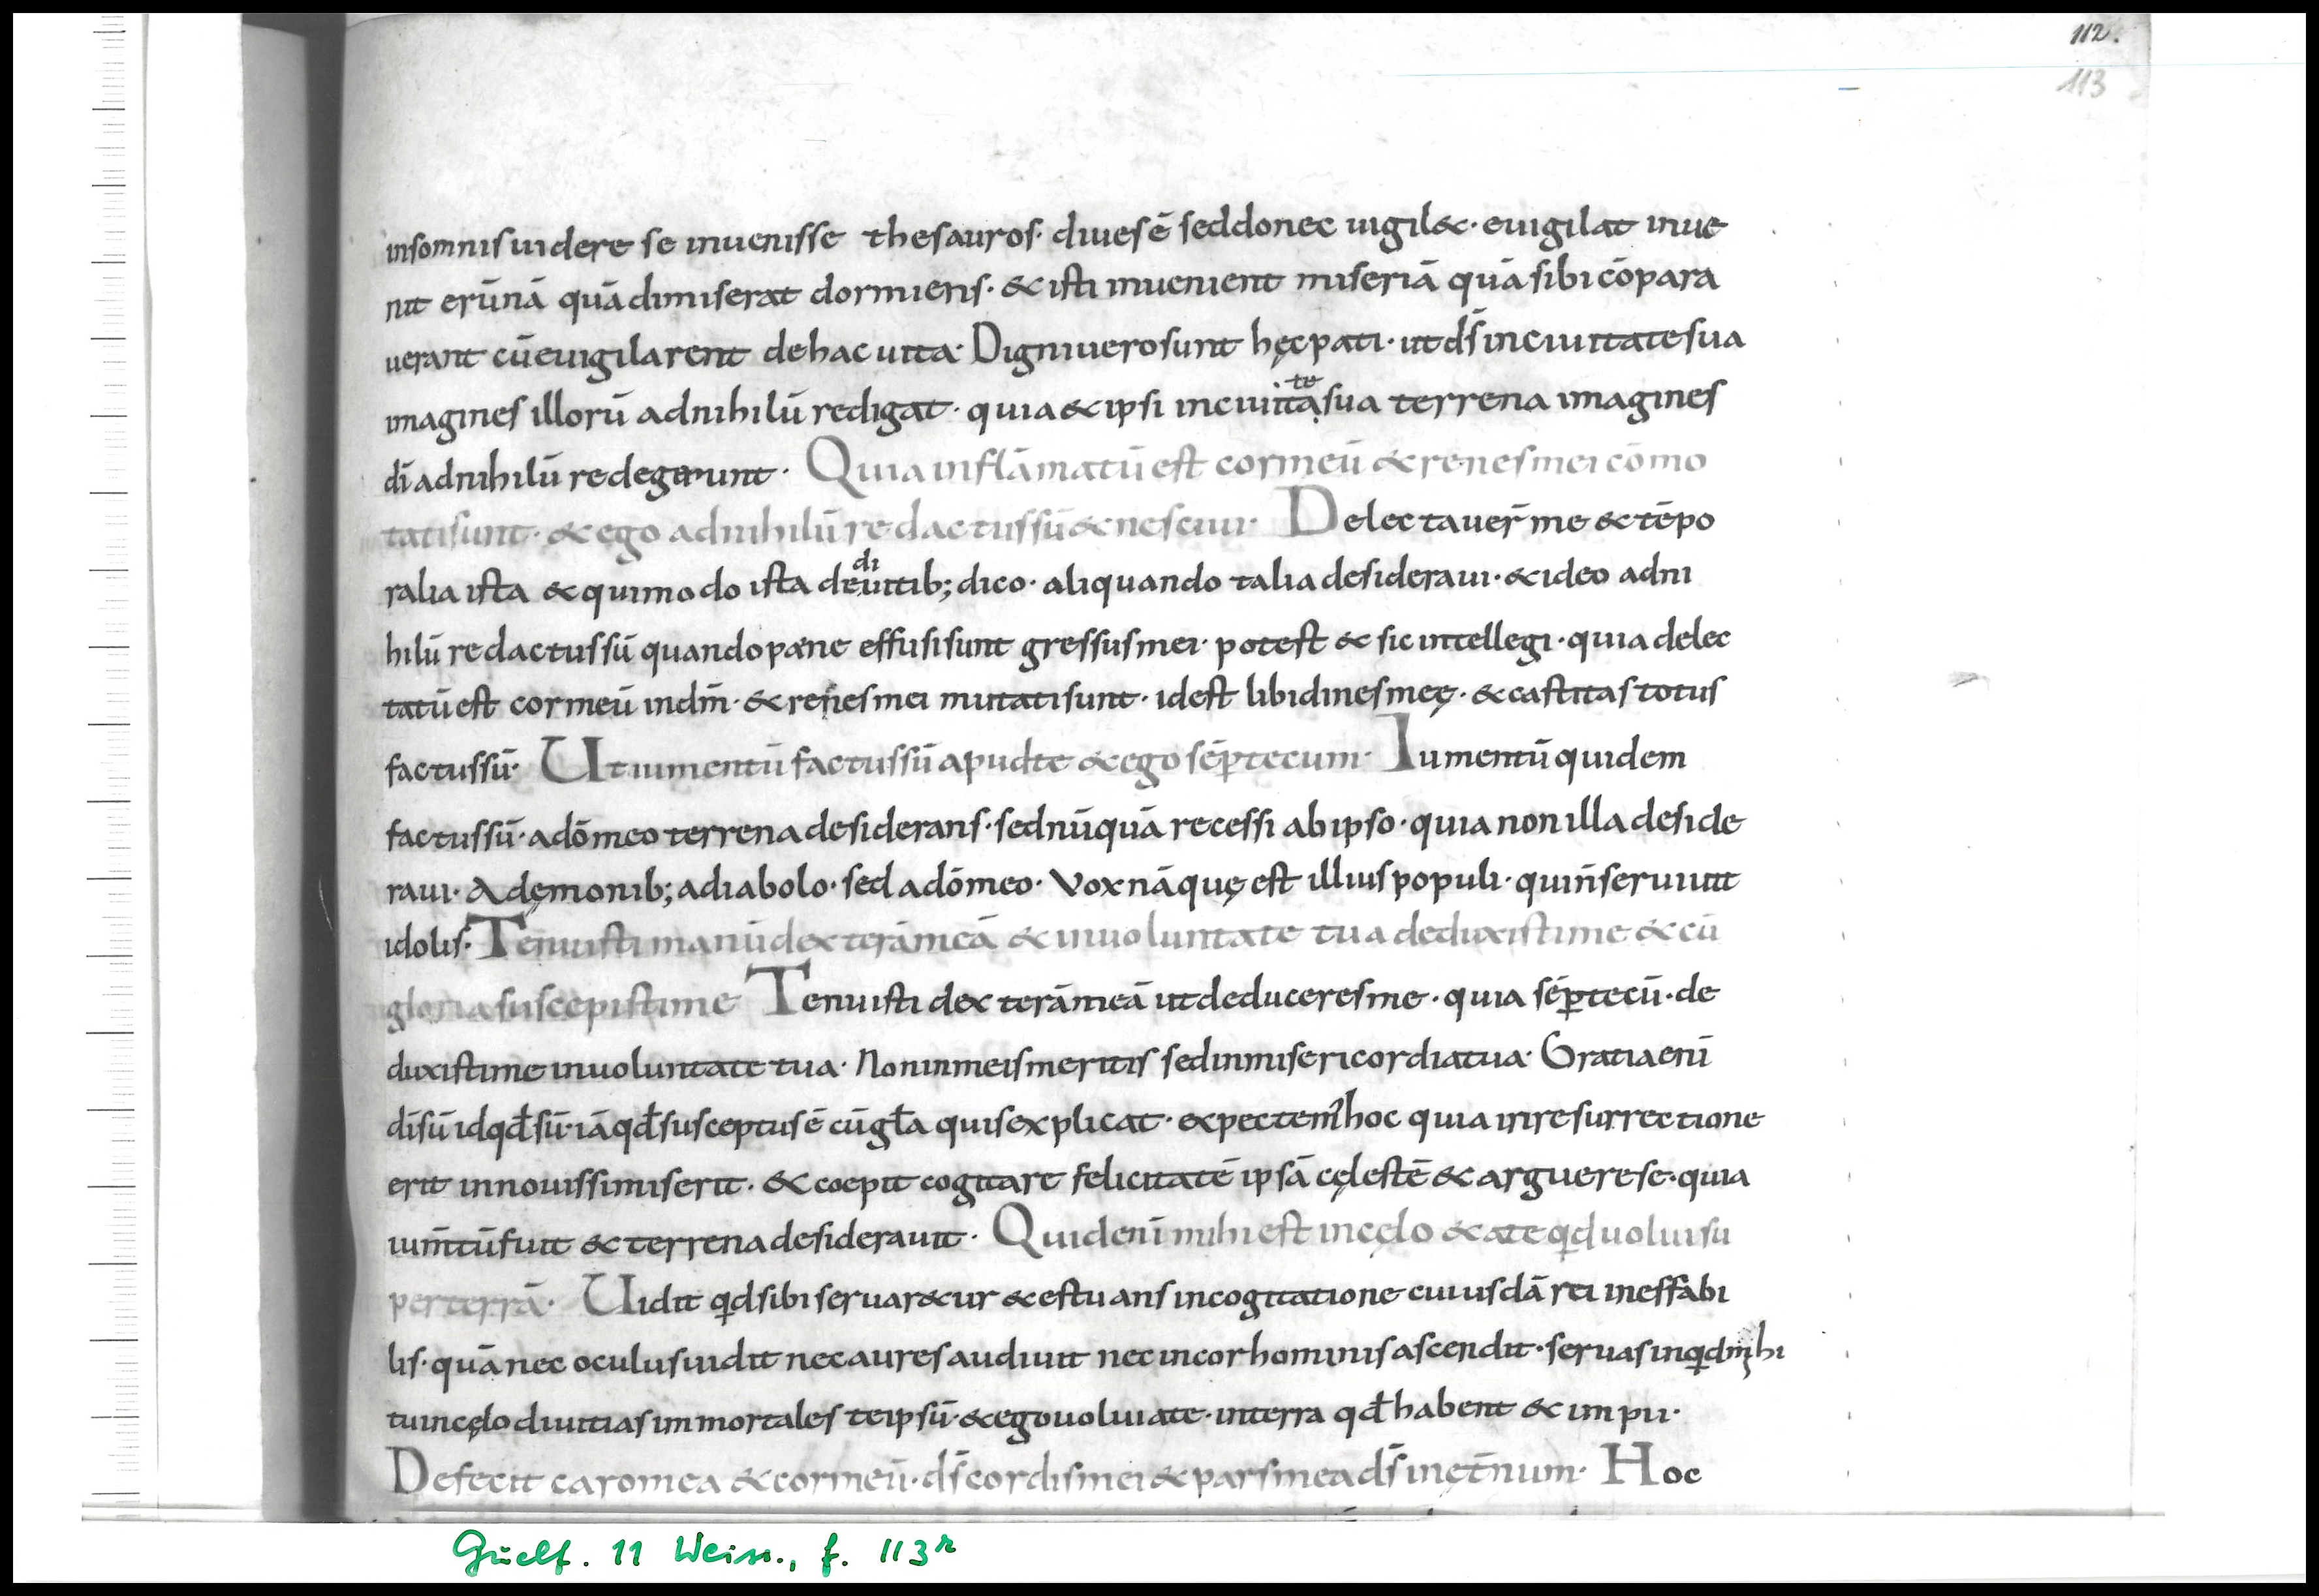 112.
113
insomnis uidere se inuenisse thesauros. diues ē sed donec uigil&· euigilat inue
nit erūnā quā dimiserat dormiens· & isti inuenient miseriā quā sibi cōpara
uerant cū euigilarent de hac uita· Digni uero sunt hęc pati· ut d̄s in ciuitate sua
imagines illorū ad nihilū redigat· quia & ipsi in ciuita te sua terrena imagines
dī ad nihilū redegerunt· Quia inflāmatū est cor meū & renes mei cōmo
tati sunt· & ego ad nihilū redactus sū & nesciui· Delectauer̄ me & tēpo
ralia ista & qui modo ista de di uitib; dico· aliquando talia desideraui· & ideo ad ni
hilū redactus sū quando pane effusi sunt gressus mei· potest & sic intellegi· quia delec
tatū est cor meū in dm̄· & renes mei mutati sunt· id est libidines meę· & castitas totus
factus sū· Ut iumentū factus sū apud te & ego sēp tecum· Iumentū quidem
factus sū· a dō meo terrena desiderans· sed nūquā recessi ab ipso· quia non illa deside
raui· A dęmonib; a diabolo· sed a dō meo· Vox nāquę est illius populi· qui n̄ seruiuit
idolis· Tenuisti manū dexterā meā & in uoluntate tua deduxisti me & cū
gloria suscepisti me Tenuisti dexterā meā ut deduceres me· quia sēp tecū· de
duxisti me in uoluntate tua· Non in meis meritis sed in misericordia tua· Gratia enī
dī sū id qđ sū· iā qđ susceptus ē cū gła quis explicat· expectem hoc quia in resurrectione
erit in nouissimis erit· & coepit cogitare felicitatē ipsā cęlestē & arguere se· quia
ium̄tū fuit & terrena desiderauit· Quid enī mihi est in cęlo & a te qd uolui su
per terrā· Uidit qd sibi seruar&ur & estuans in cogitatione cuiusdā rei ineffabi
lis· quā nec oculus uidit nec aures audiuit nec in cor hominis ascendit· seruas inqd mihi
tu in cęlo diuitias immortales te ipsū· & ego uolui a te· in terra qđ habent & impii·
Defecit caro mea & cor meū· d̄s cordis mei & pars mea d̄s in ęt̄num· Hoc
Guelf. 11 Weiss., f. 113r